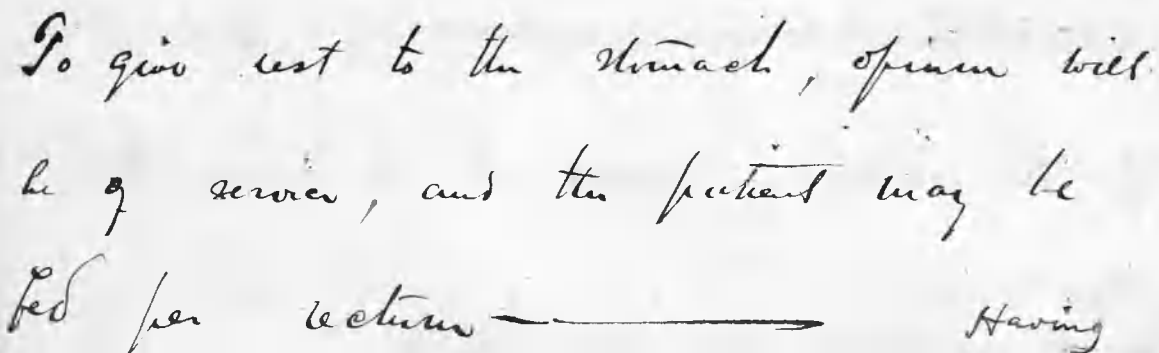 To give rest to the stomach, opium will
be of service, and the patient may be
fed per rectum — Having